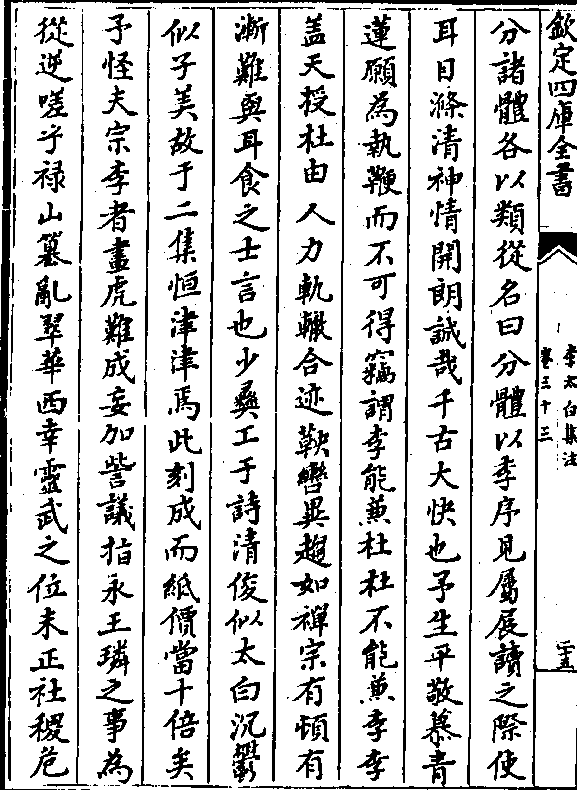 欽定四庫全書
李太白集注
卷三十三
二十五
分諸體各以類從名曰分體以李序見屬展讀之際使
耳目滌清神情開朗誠哉千古大快也予生平敬慕青
蓮願為執鞭而不可得竊謂李能兼杜杜不能兼李李
蓋天授杜由人力軌轍合迹鞅轡異趨如禪宗有頓有
漸難與耳食之士言也少彞工于詩清俊似太白沉鬱
似子美故于二集恒津津焉此刻成而紙價當十倍矣
予怪夫宗李者畫虎難成妄加訾議指永王璘之事為
從逆嗟乎禄山簒亂翠華西幸靈武之位未正社稷危